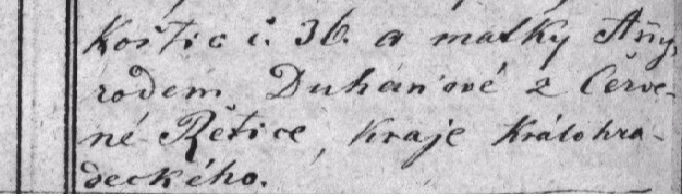 Koštic č. 36. a matky Anny,
rodem Duhanové z Červe-
né Řětice, kraje Králohra-
deckého.